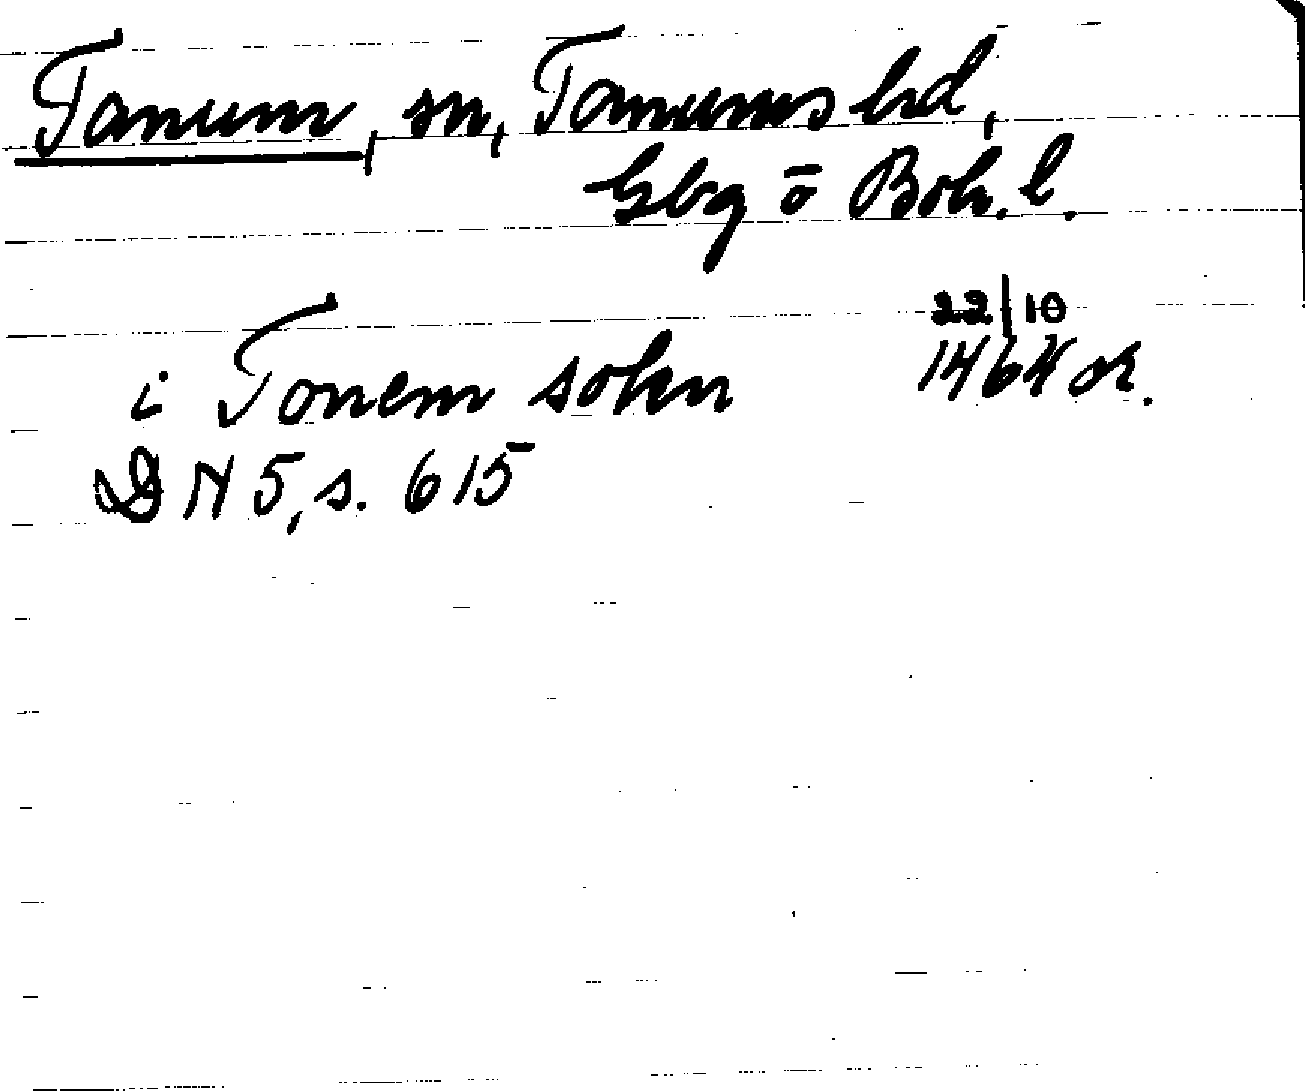 Tanum, sn, Tanums hd,
Gbg ō Boh. l.
i Tonem sokn 22/10
1464 or.
DN 5, s. 615